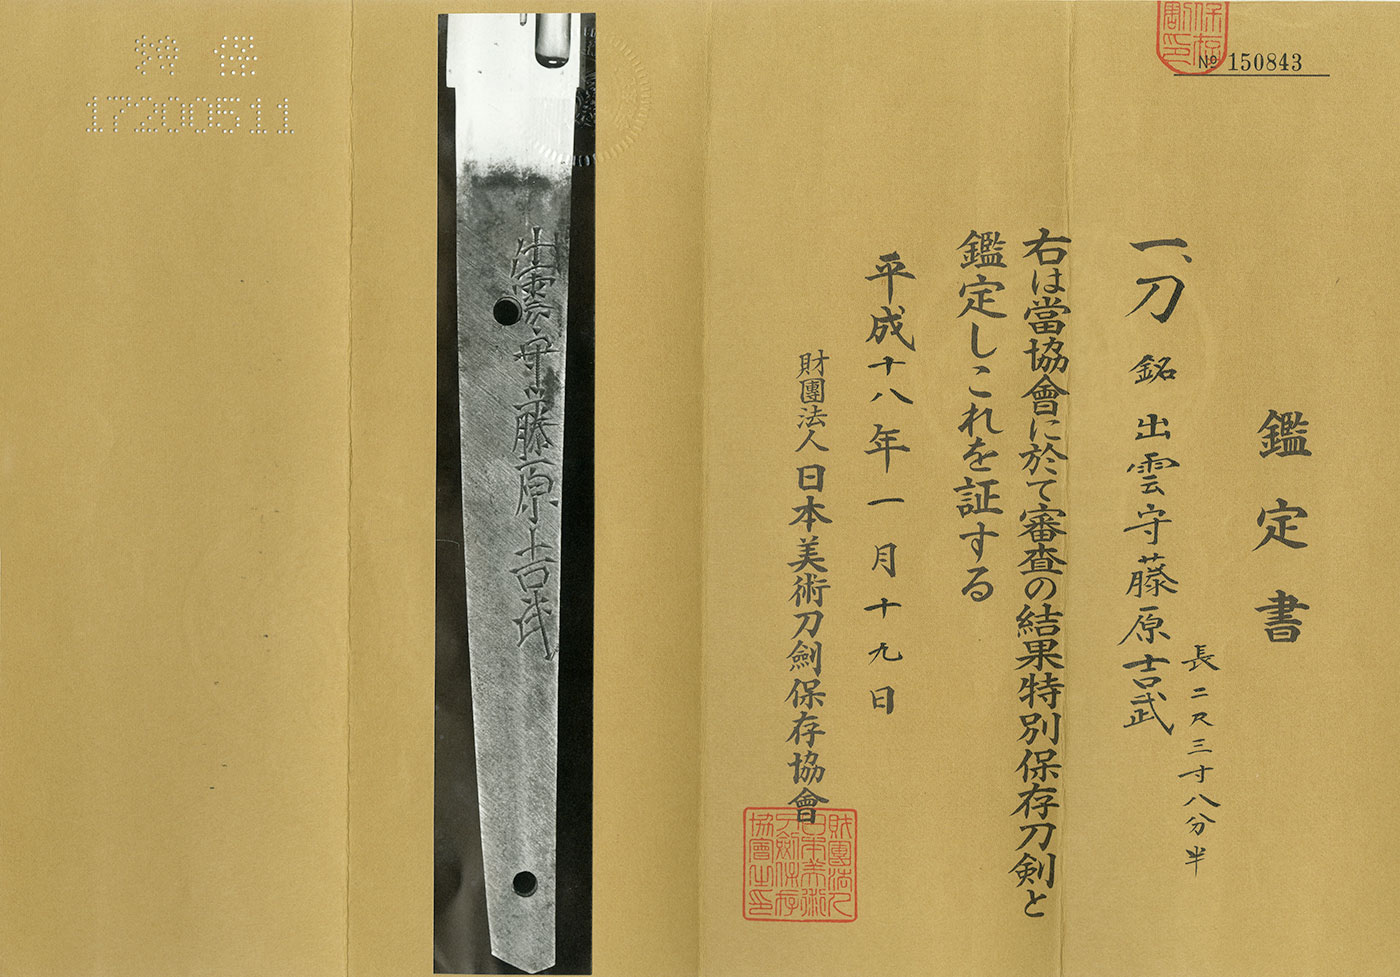 № 150843
鑑定書
一、刀 銘 出雲守藤原吉武
長二尺三寸八分半
右は當協會に於て審査の結果特別保存刀剣と
鑑定しこれを証する
平成十八年一月十九日
財團法人日本美術刀劍保存協會
財團法人
日本美術
刀劍保存
協會之印
出雲守藤原吉武
特 保
17200511